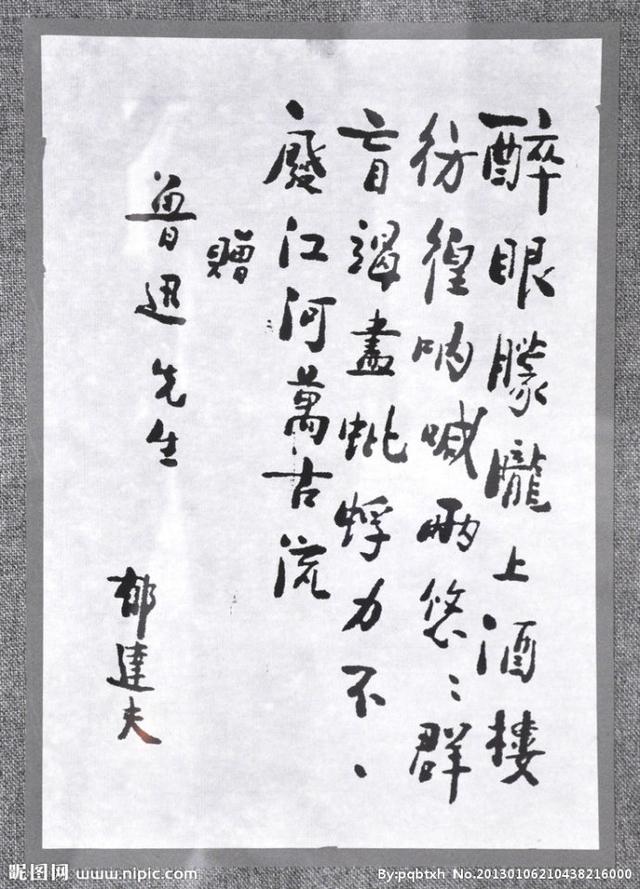 醉眼朦朧上酒樓
彷徨吶喊兩悠〻群
盲竭盡蚍蜉力不、
廢江河萬古流
贈
魯迅先生
郁達夫
昵图网 www.nipic.com
By:pqbtxh No.20130106210438216000